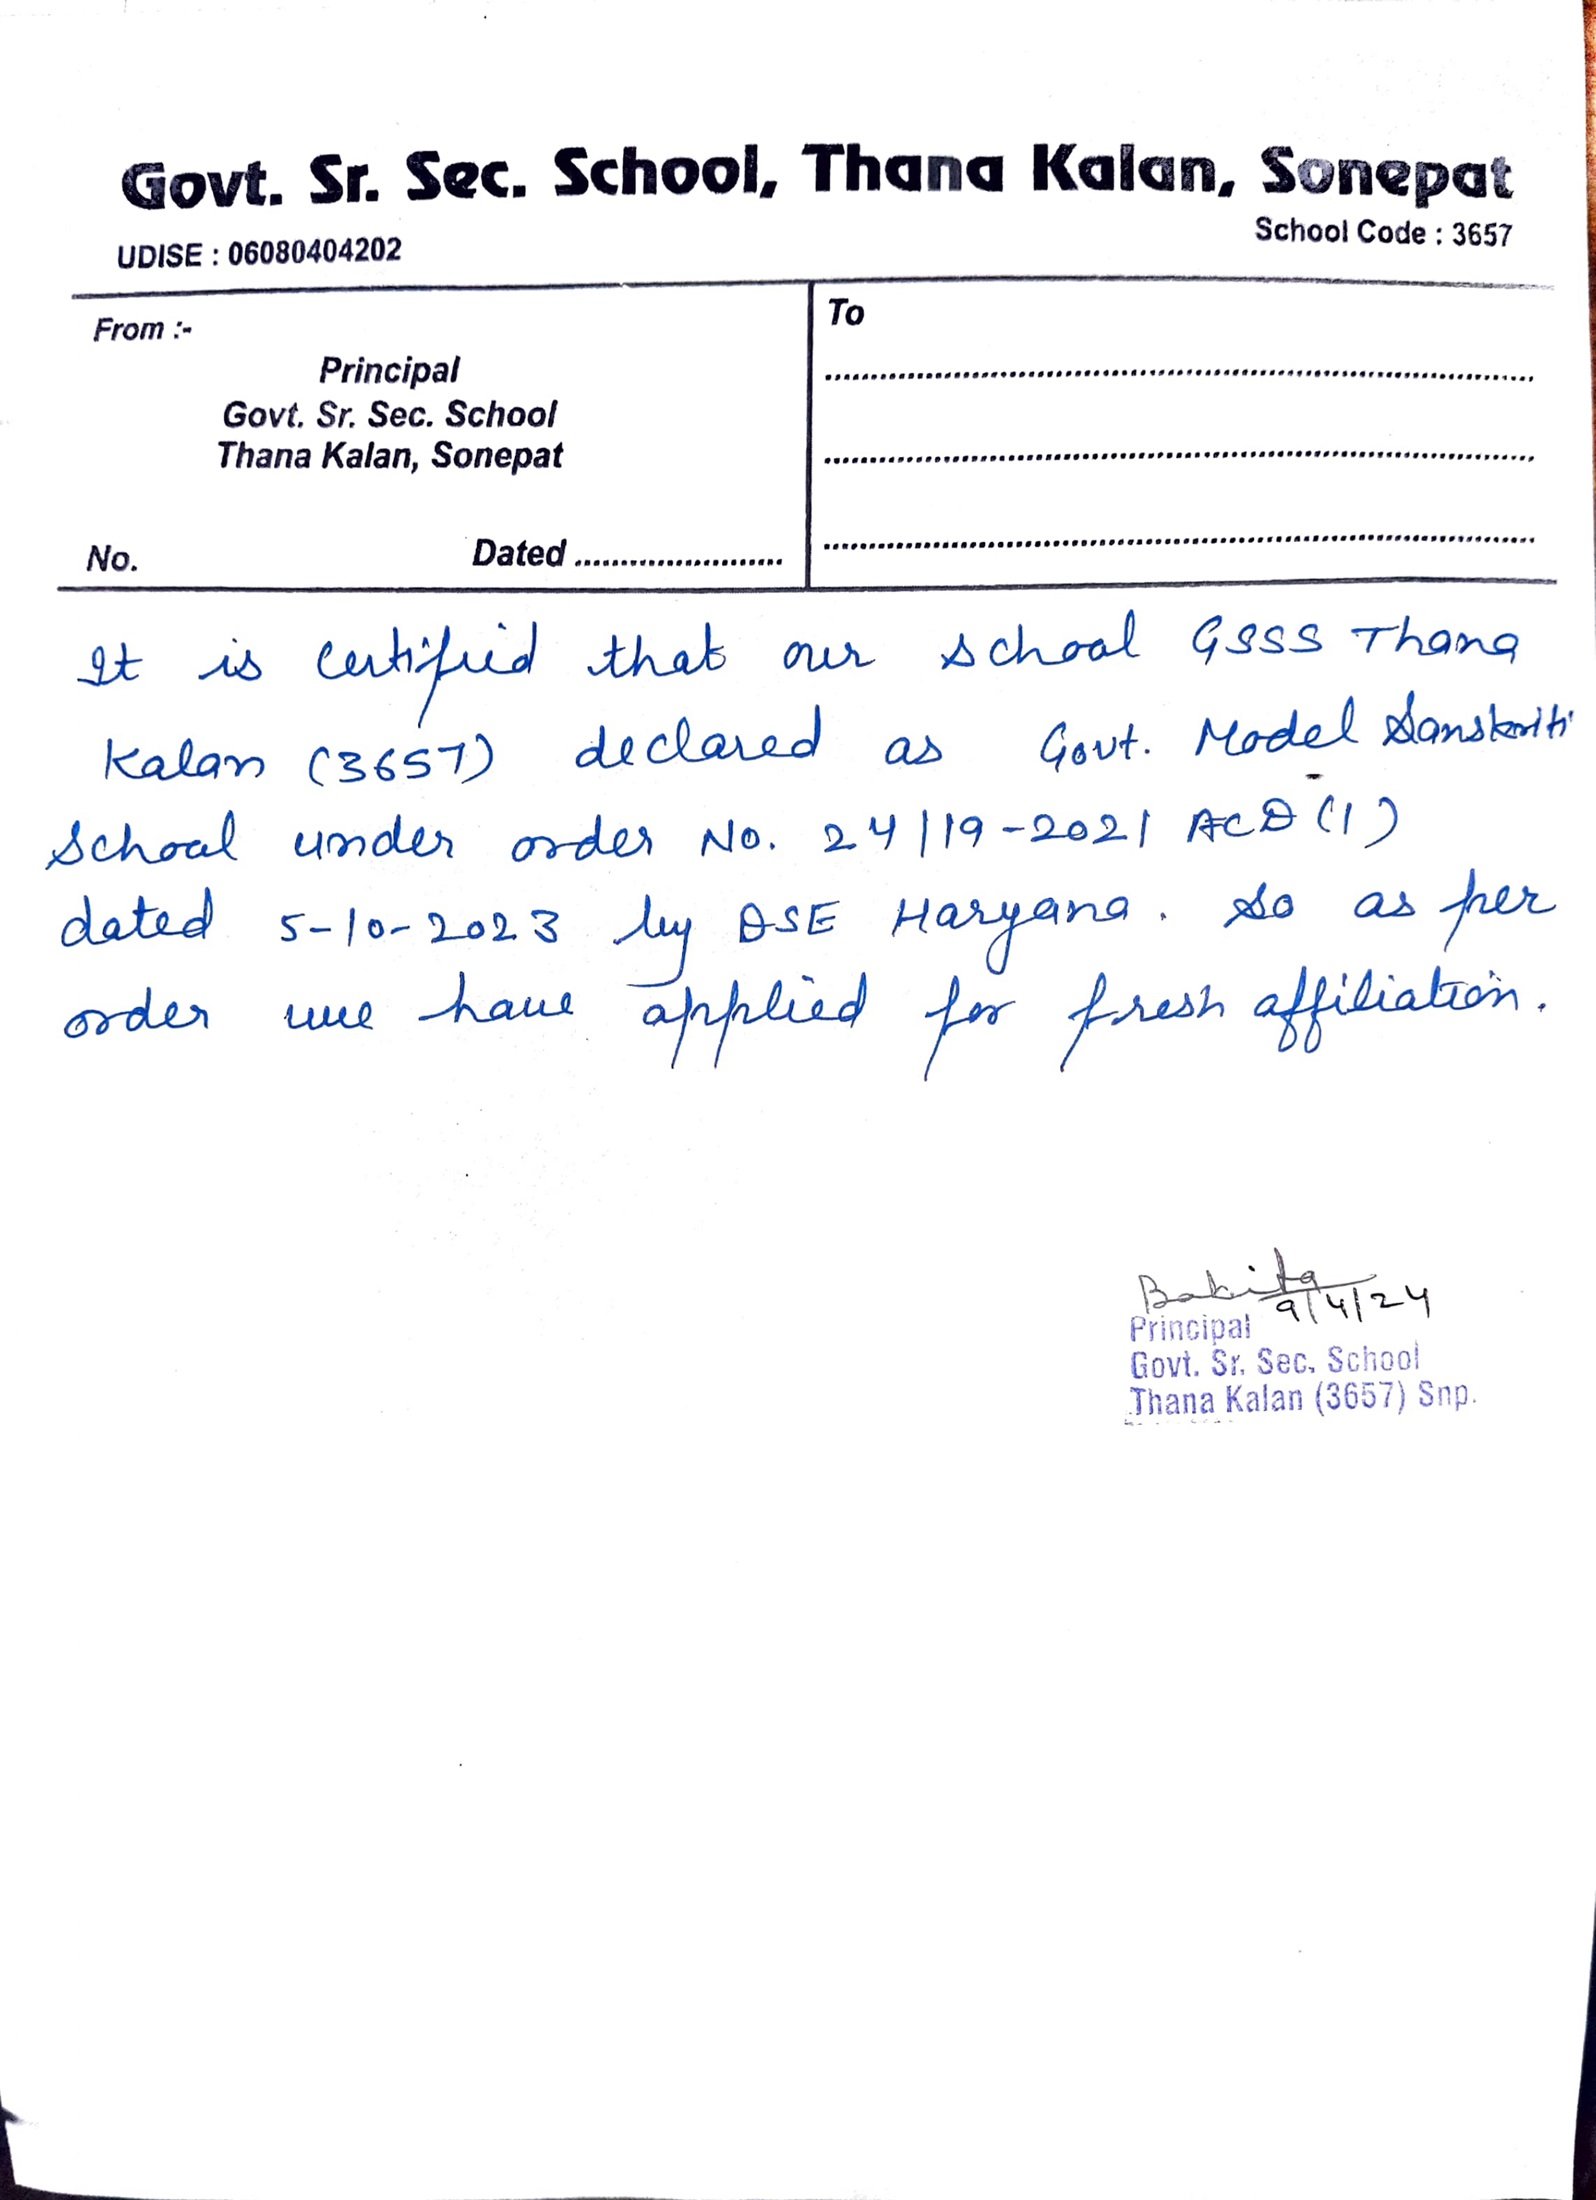 Govt. Sr. Sec. School, Thana Kalan, Sonepat
UDISE : 06080404202
School Code : 3657
From :-
Principal
Govt. Sr. Sec. School
Thana Kalan, Sonepat
No.
Dated .......................
To
It is certified that our school GSSS Thana
Kalan (3657) declared as Govt. Model Sanskriti
School under order No. 24/19-2021 ACD (1)
dated 5-10-2023 by DSE Haryana. So as per
order we have applied for fresh affiliation.
9/4/24
Principal
Govt. Sr. Sec. School
Thana Kalan (3657) Snp.